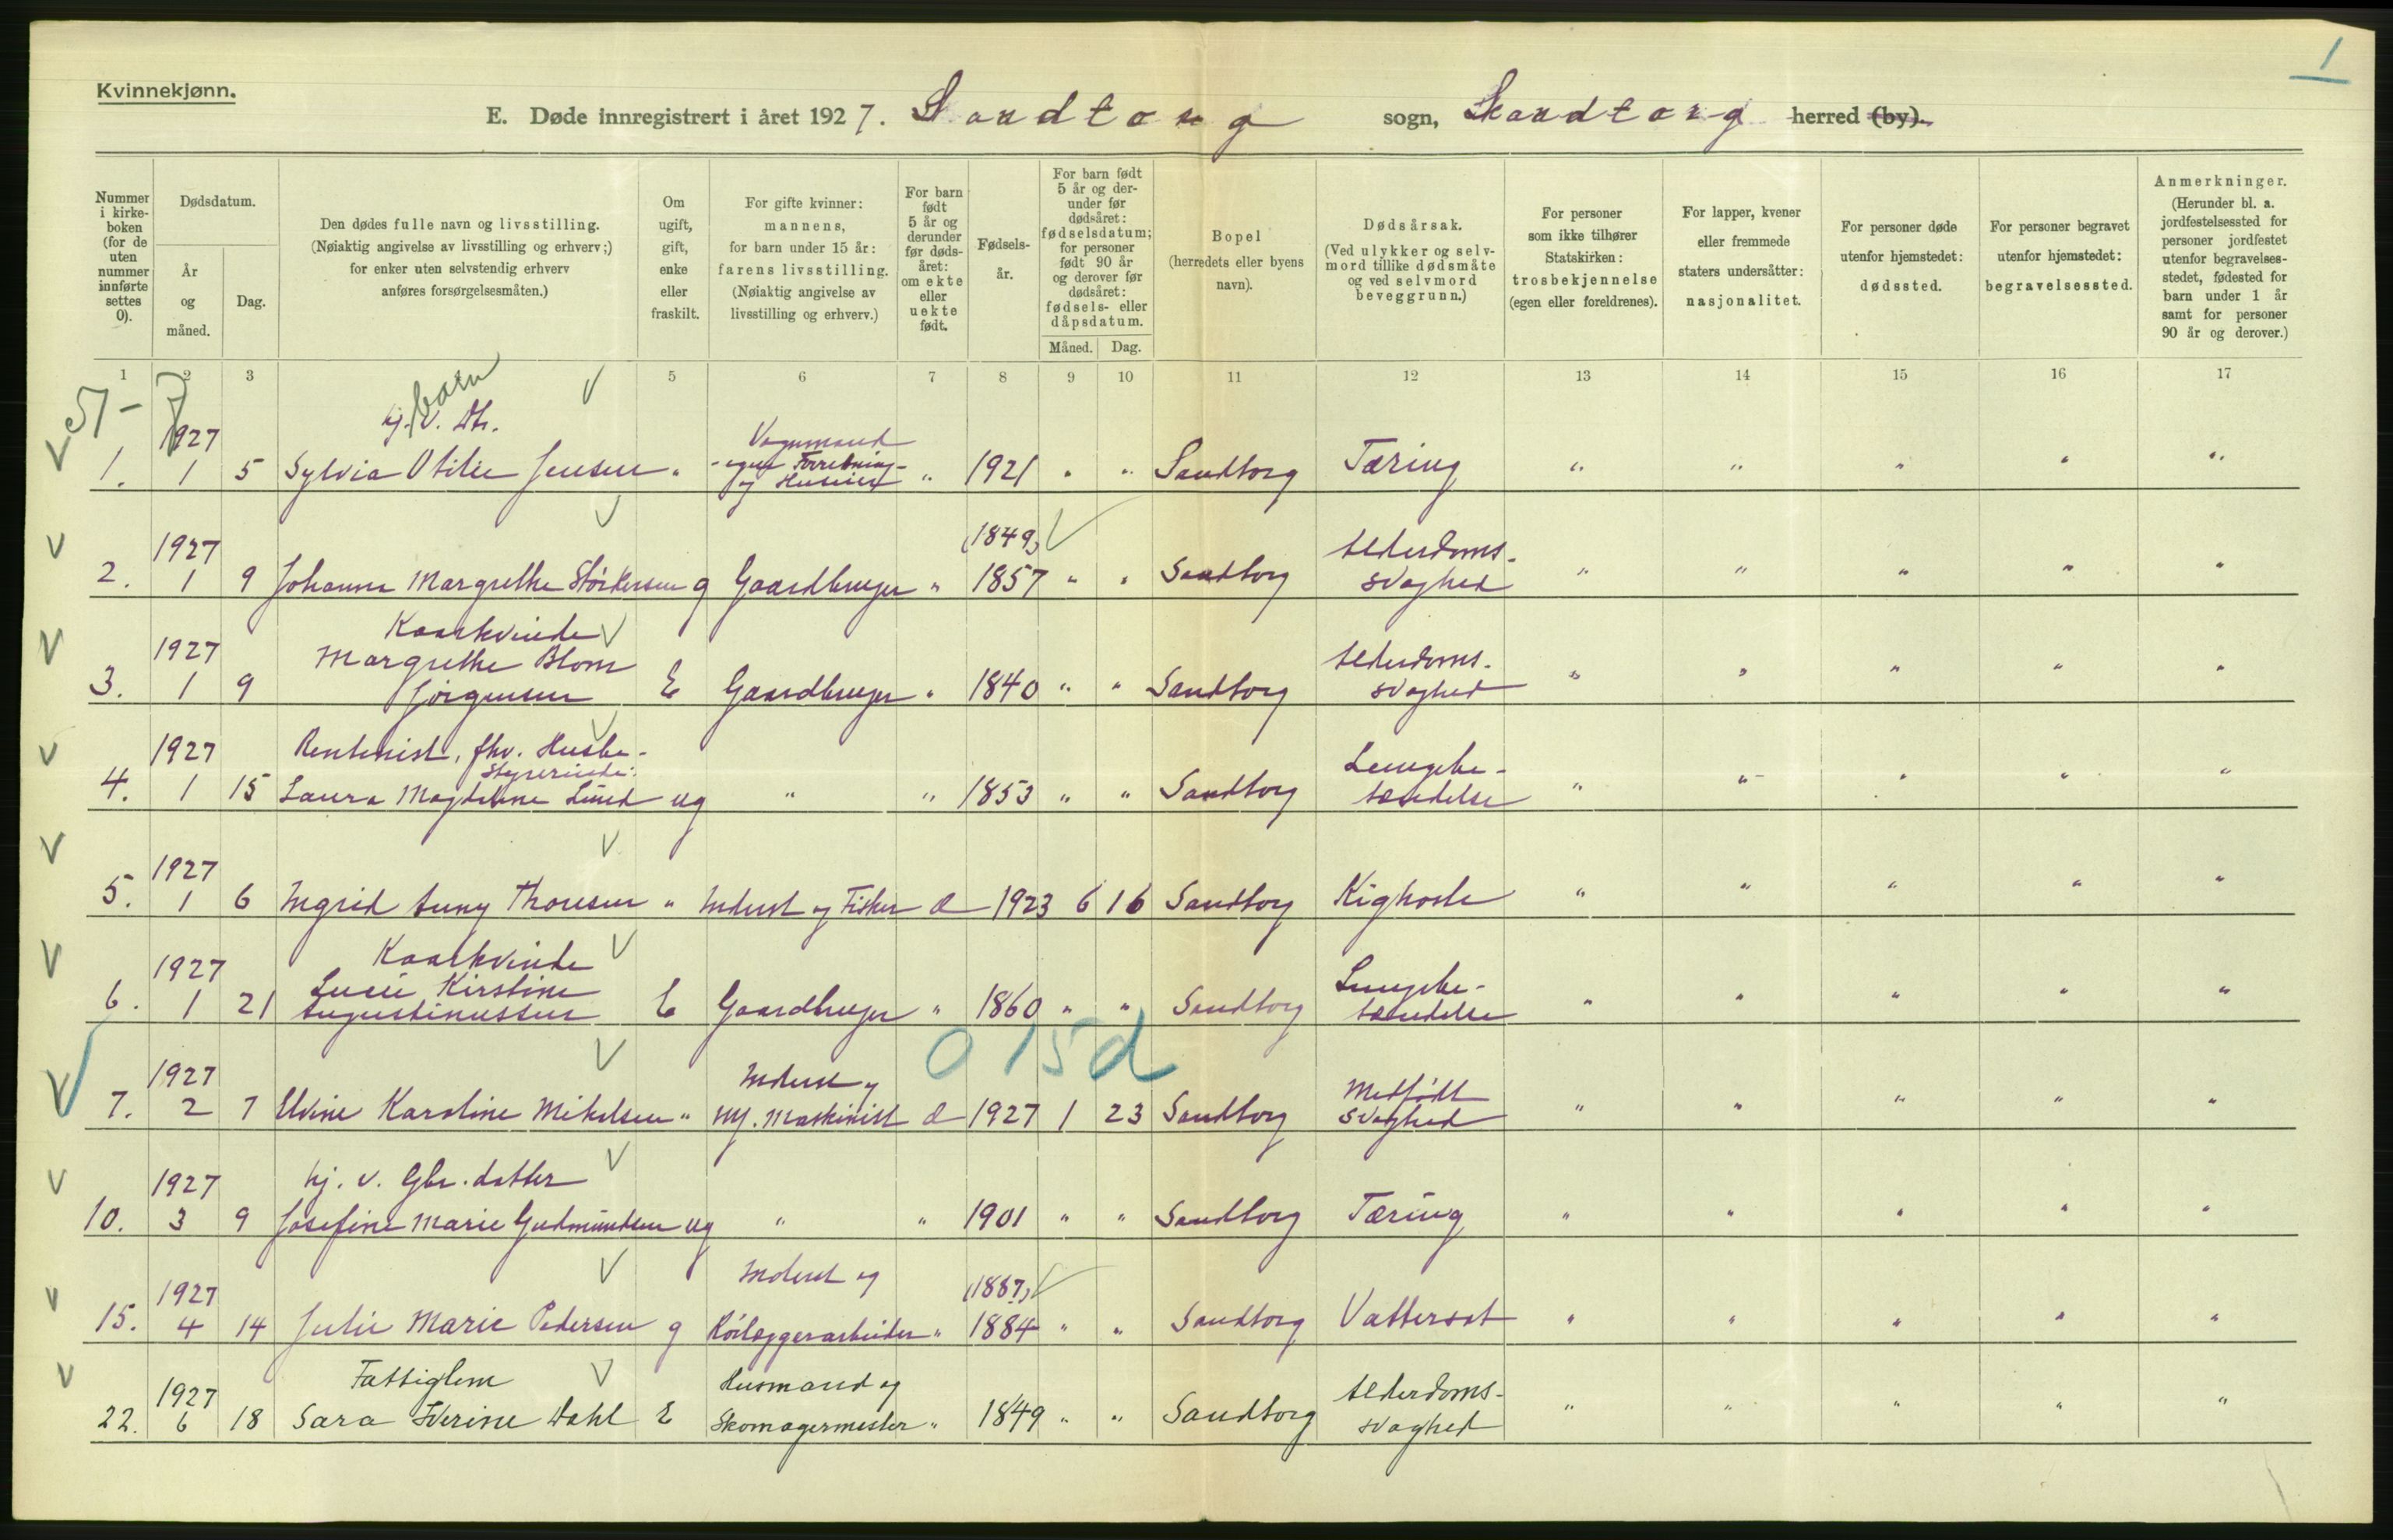 1
Kvinnekjønn.
E. Døde innregistrert i året 1927. Sandtorg sogn, Sandtorg herred (by).
Nummer i kirke-boken (for de uten nummer innførte settes 0).
Dødsdatum.
År og måned.
Dag.
Den dødes fulle navn og livsstilling.
(Nøiaktig angivelse av livsstilling og erhverv;)
for enker uten selvstendig erhverv
anføres forsørgelsesmåten.)
Om
ugift,
gift,
enke
eller
fraskilt.
For gifte kvinner:
mannens,
for barn under 15 år:
farens livsstilling.
(Nøiaktig angivelse av
livsstilling og erhverv.)
For barn
født
5 år og
derunder
før døds-
året:
om ekte
eller
uekte
født.
Fødsels-
år.
For barn født
5 år og der-
under før
dødsåret:
fødselsdatum;
for personer
født 90 år
og derover før
dødsåret:
fødsels- eller
dåpsdatum.
Måned. Dag.
Bopel
(herredets eller byens
navn).
Dødsårsak.
(Ved ulykker og selv-
mord tillike dødsmåte
og ved selvmord
beveggrunn.)
For personer
som ikke tilhører
Statskirken:
trosbekjennelse
(egen eller foreldrenes).
For lapper, kvener
eller fremmede
staters undersåtter:
nasjonalitet.
For personer døde
utenfor hjemstedet:
dødssted.
For personer begravet
utenfor hjemstedet:
begravelsessted.
Anmerkninger.
(Herunder bl. a.
jordfestelsessted for
personer jordfestet
utenfor begravelses-
stedet, fødested for
barn under 1 år
samt for personer
90 år og derover.)
1 2 3 5 6 7 8 9 10 11 12 13 14 15 16 17
barn
hj. v. Dtr.
1927 Vognmand
egen Forretning
1. 1 5 Sylvia Otilie Jensen " og Huseier " 1921 " " Sandtorg Tæring " " " " "
1927 (1849) Alderdoms-
2. 1 9 Johanna Margrethe Störkersen g Gaardbruger " 1857 " " Sandtorg svaghed " " " " "
Kaarkvinde
1927 Margrethe Blom Alderdoms-
3. 1 9 Jörgensen E Gaardbruger " 1840 " " Sandtorg svaghed " " " " "
1927 Rentenist, fhv. Husbe- Lungebe-
styrerinde:
4. 1 15 Laura Magdalene Lund ug " " 1853 " " Sandtorg tændelse " " " " "
1927
5. 1 6 Ingrid Auny Thoresen " Inderst og Fisker æ 1923 6 16 Sandtorg Kighoste " " " " "
Kaarkvinde
1927 Lucie Kirstine Lungebe-
6. 1 21 Augustinussen E Gaardbruger " 1860 " " Sandtorg tændelse " " " " "
0 15d
1927 Inderst og Medfödt
7. 2 7 Elvine Karoline Mikelsen " Maskinist æ 1927 1 23 Sandtorg svaghed " " " " "
1927 hj. v. Gbr. datter
10. 3 9 Josefine Marie Gudmundsen ug " " 1901 " " Sandtorg Tæring " " " " "
1927 Inderst og (1887)
15. 4 14 Julie Marie Pedersen g Röilæggerarbeider " 1884 " " Sandtorg Vattersot " " " " "
1927 Fattiglem Husmand og Alderdoms-
22. 6 18 Sara Iverine Dahl E Skomagermester " 1849 " " Sandtorg svaghed " " " " "